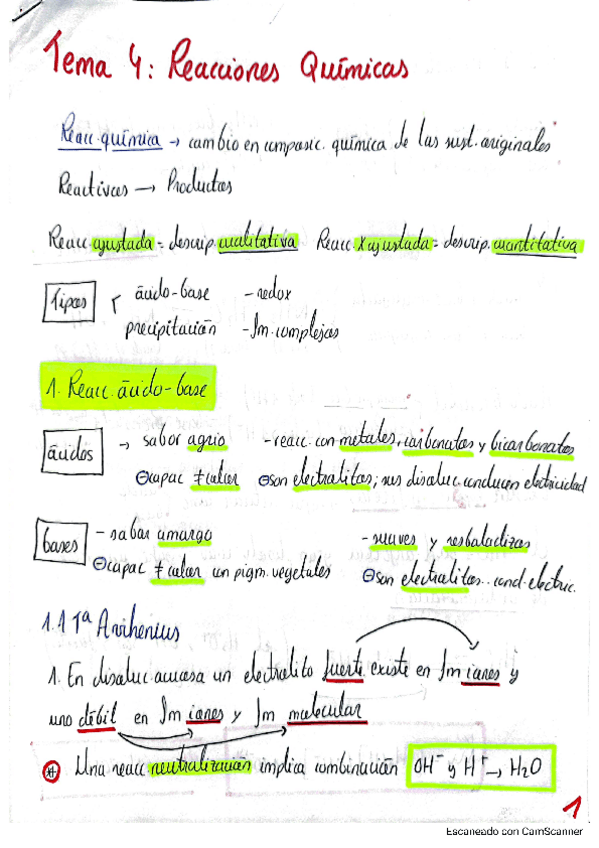 Tema 4: Reacciones Químicas
Reacc. química → cambio en composic. química de las sust. originales
Reactivos → Productos
Reacc. ajustada = descrip. cualitativa Reacc. X ajustada = descrip. cuantitativa
Tipos ácido-base - redox
precipitación - fm. complejos
1. Reacc. ácido-base
ácidos → sabor agrio - reacc. con metales, carbonatos y bicarbonatos
capac ≠ color son electrolitos; sus disoluc. conducen electricidad
bases - sabor amargo - suaves y resbaladizas
capac ≠ color con pigm. vegetales son electrolitos.. cond. electric.
1.1 Tª Arrhenius
1. En disoluc. acuosa un electrolito fuerte existe en fm iones y
uno débil en fm iones y fm molecular
Una reacc neutralización implica combinación OH⁻ y H⁺ → H₂O
1
Escaneado con CamScanner